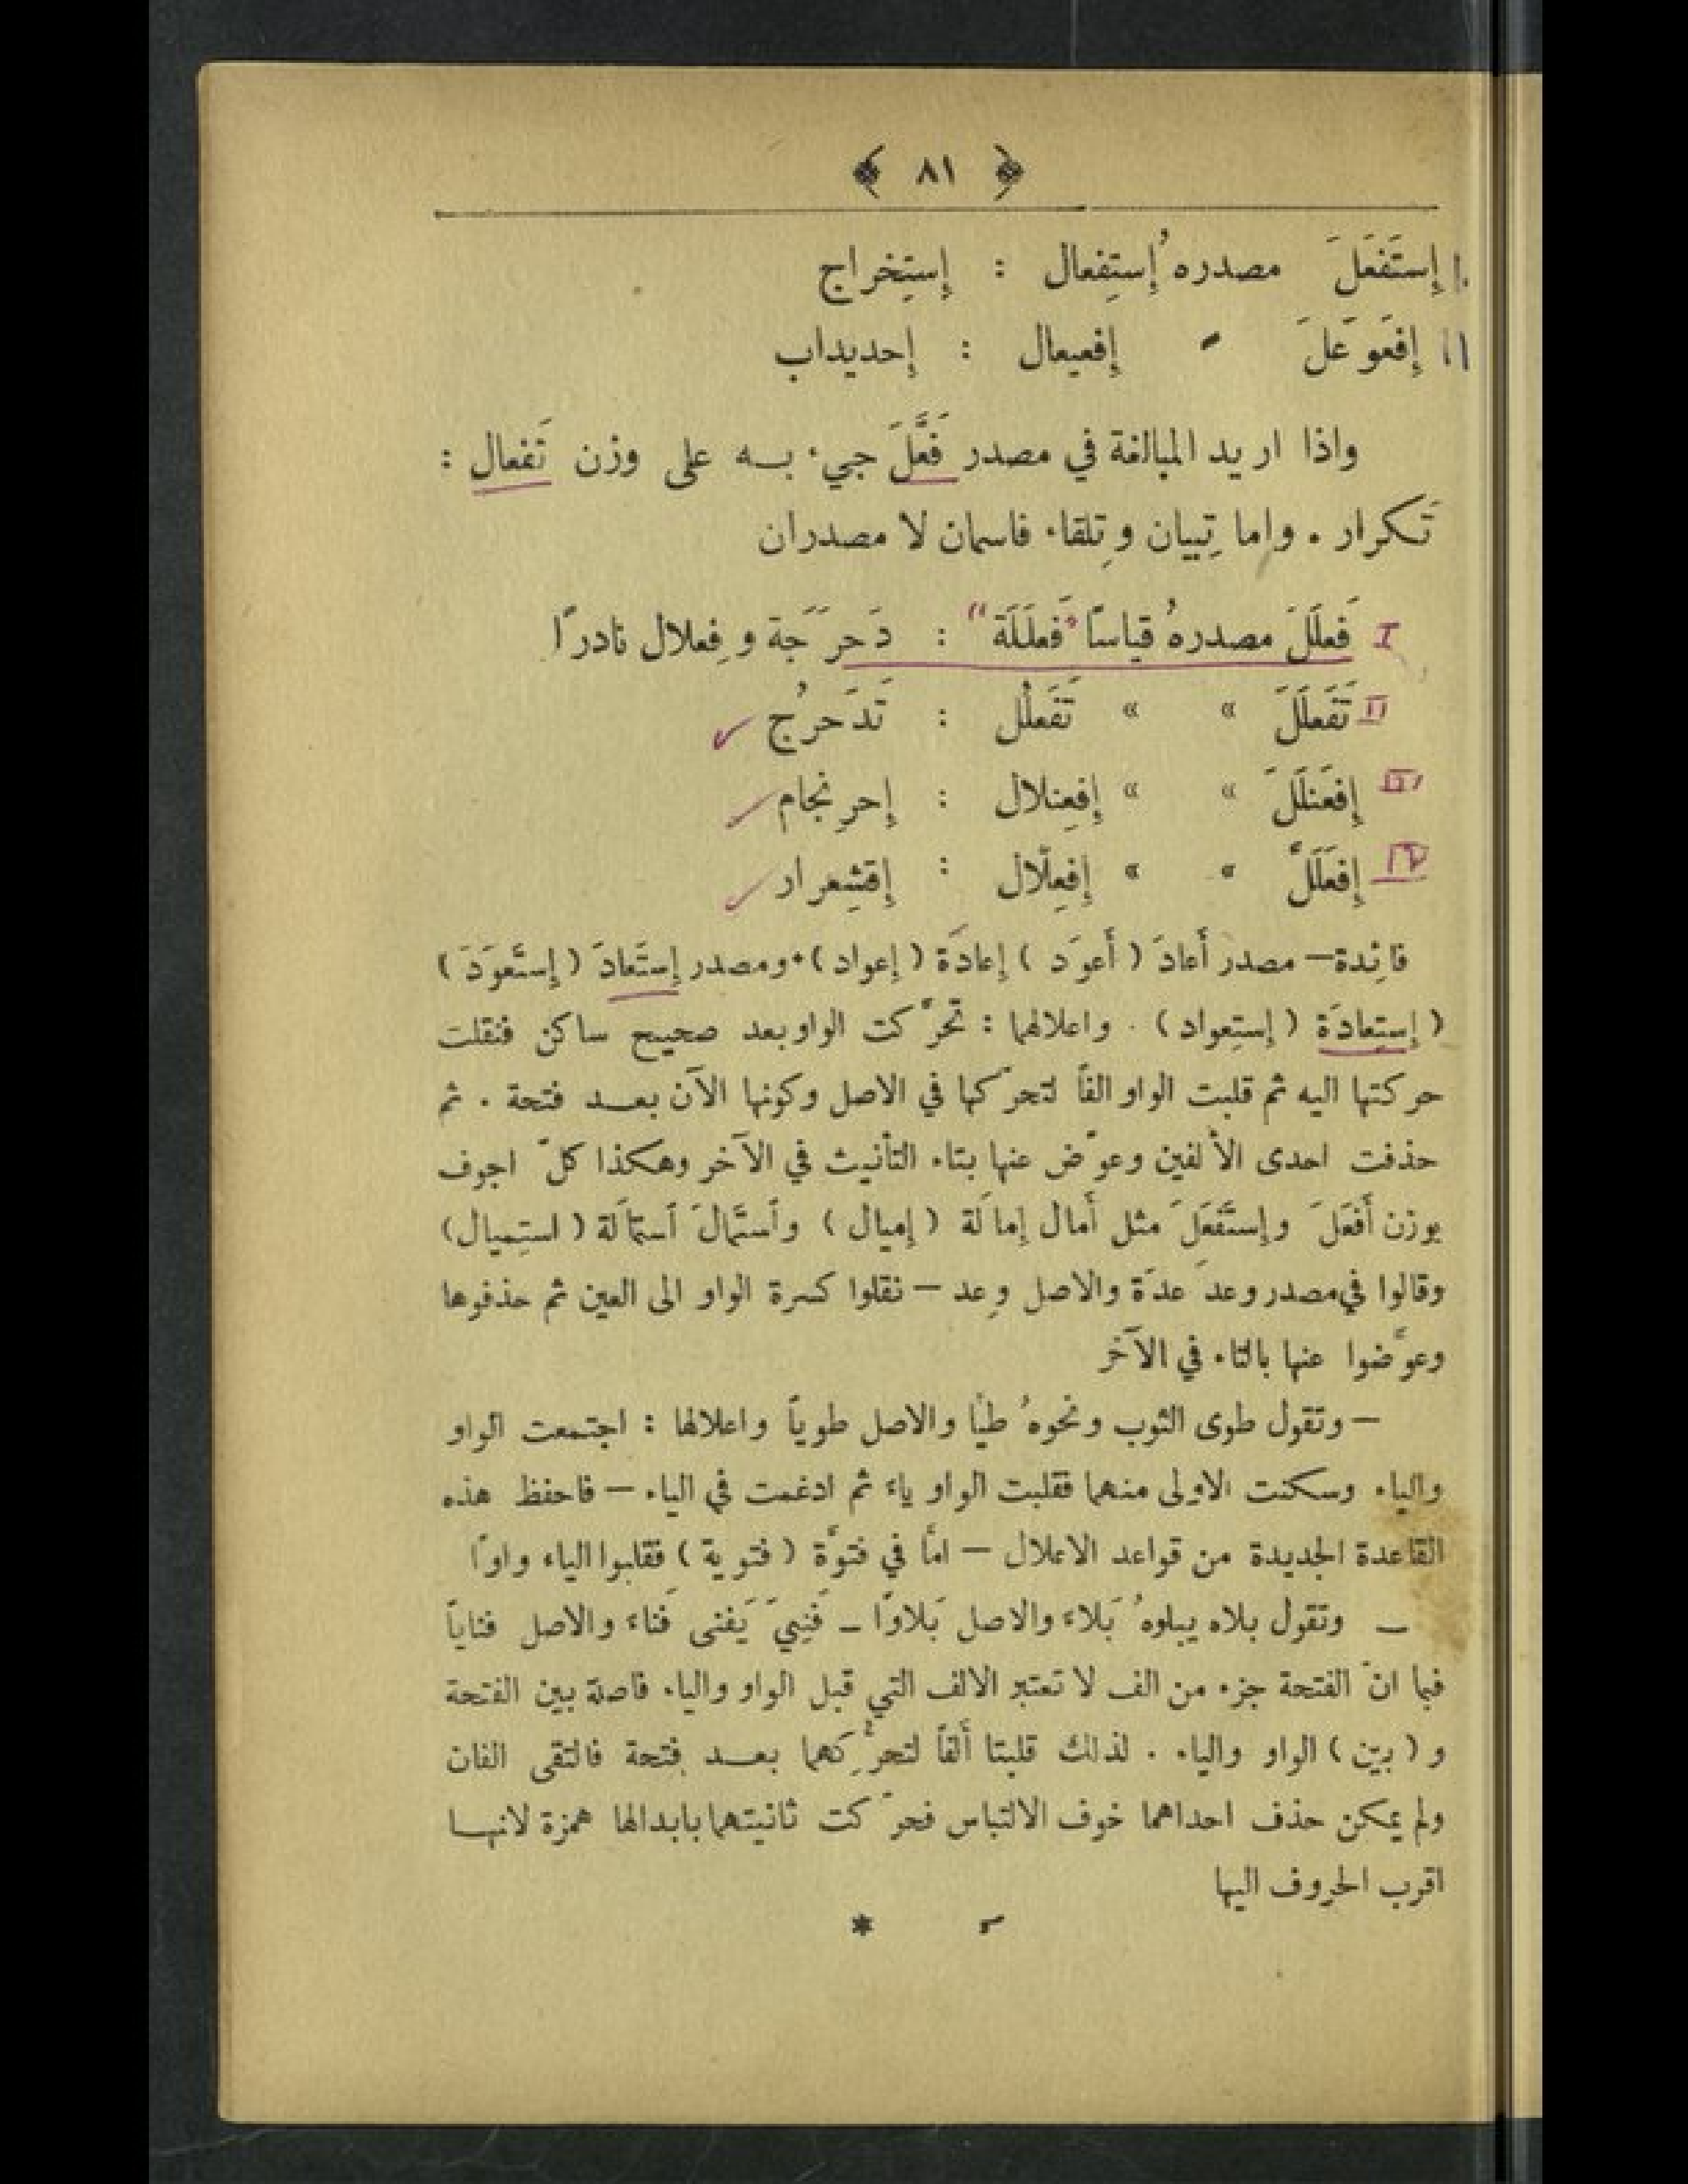 ﴿ ٨١ ﴾
١٠ إِستَفعَلَ مصدرهُ إِستِفعال : إِستِخراج
١١ إِفعَوعَلَ " إِفعيعال : إِحديداب
واذا اريد المبالغة في مصدر فَعَّلَ جيء به على وزن تَفعال :
تَكرار . واما تِبيان وتِلقاء فاسمان لا مصدران
I فَعلَلَ مصدرهُ قياسًا "فَعلَلَة" : دَحرَجَة وفِعلال نادرًا
II تَفَعلَلَ « « تَفَعلُل : تَدَحرُج ✓
III إِفعَنلَلَ « « إِفعِنلال : إِحرِنجام ✓
IV إِفعَلَلَّ « « إِفعِلّال : إِقشِعرار ✓
فائِدة — مصدر أَعادَ ( أَعوَد ) إِعادَة ( إِعواد ) ٠ ومصدر إِستَعادَ ( إِستَعوَدَ )
( إِستِعادَة ( إِستِعواد ) . واعلالهما : تحرَّكت الواو بعد صحيح ساكن فنقلت
حركتها اليه ثم قلبت الواو الفاً لتحرّكها في الاصل وكونها الآن بعد فتحة . ثم
حذفت احدى الألفين وعوّض عنها بتاء التأنيث في الآخر وهكذا كلّ اجوف
بوزن أَفعَلَ وإِستَفعَلَ مثل أَمال إِمالَة ( إِميال ) وأستَمالَ أستمالَة ( استِميال )
وقالوا في مصدر وعد عِدَة والاصل وِعد — نقلوا كسرة الواو الى العين ثم حذفوها
وعوَّضوا عنها بالتاء في الآخر
— وتقول طوى الثوب ونحوهُ طيًّا والاصل طوياً واعلالها : اجتمعت الواو
والياء وسكنت الاولى منهما فقلبت الواو ياء ثم ادغمت في الياء — فاحفظ هذه
القاعدة الجديدة من قواعد الاعلال — امَّا في فتوَّة ( فتوية ) فقلبوا الياء واوًا
— وتقول بلاه يبلوهُ بَلاء والاصل بَلاوًا — فَنِيَ يَفنى فَناء والاصل فناياً
فبما انّ الفتحة جزء من الف لا تعتبر الالف التي قبل الواو والياء فاصلة بين الفتحة
و ( بين ) الواو والياء . لذلك قلبتا أَلفاً لتحرُّكِهما بعد فتحة فالتقى الفان
ولم يمكن حذف احداهما خوف الالتباس فحرّكت ثانيتهما بابدالها همزة لانها
اقرب الحروف اليها
*